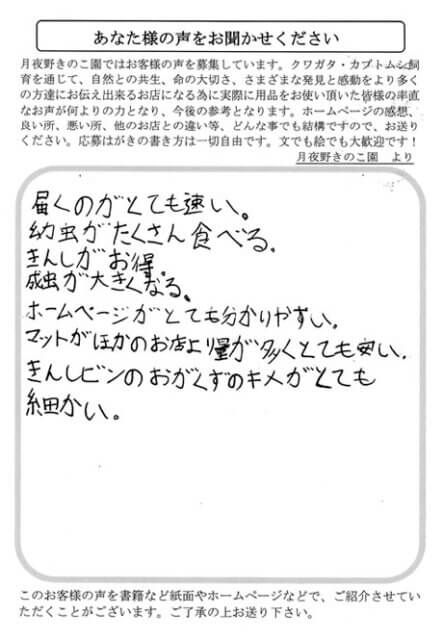 あなた様の声をお聞かせください
月夜野きのこ園ではお客様の声を募集しています。クワガタ・カブトムシ飼
育を通じて、自然との共生、命の大切さ、さまざまな発見と感動をより多く
の方達にお伝え出来るお店になる為に実際に用品をお使い頂いた皆様の率直
なお声が何よりの力となり、今後の参考となります。ホームページの感想、
良い所、悪い所、他のお店との違い等、どんな事でも結構ですので、お送り
ください。応募はがきの書き方は一切自由です。文でも絵でも大歓迎です！
月夜野きのこ園　より
届くのがとても速い。
幼虫がたくさん食べる。
きんしがお得。
成虫が大きくなる。
ホームページがとても分かりやすい。
マットがほかのお店より量が多くとても安い。
きんしビンのおがくずのキメがとても
細かい。
このお客様の声を書籍など紙面やホームページなどで、ご紹介させてい
ただくことがございます。ご了承の上お送り下さい。